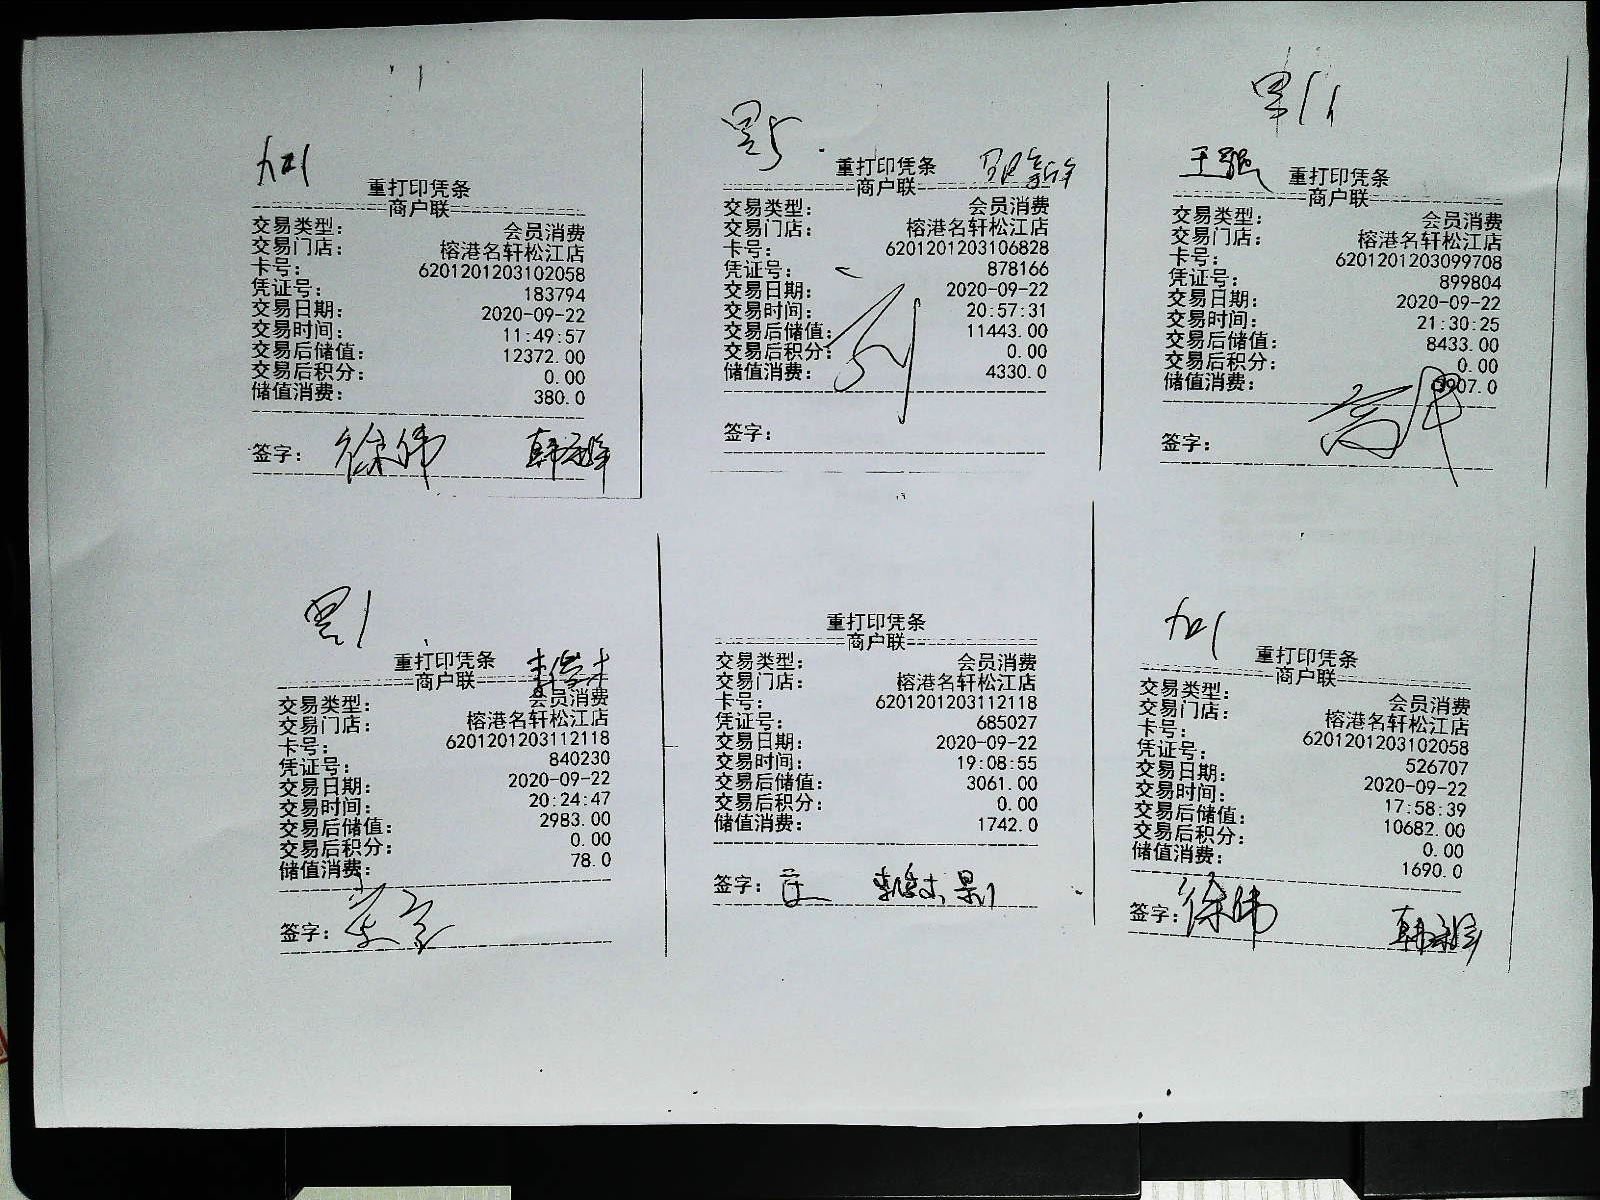 重打印凭条
商户联
交易类型： 会员消费
交易门店： 榕港名轩松江店
卡号： 6201201203102058
凭证号： 183794
交易日期： 2020-09-22
交易时间： 11:49:57
交易后储值： 12372.00
交易后积分： 0.00
储值消费： 380.0
签字： 徐伟
累5
重打印凭条
商户联
交易类型： 会员消费
交易门店： 榕港名轩松江店
卡号： 6201201203106828
凭证号： 878166
交易日期： 2020-09-22
交易时间： 20:57:31
交易后储值： 11443.00
交易后积分： 0.00
储值消费： 4330.0
签字：
王强
重打印凭条
商户联
交易类型： 会员消费
交易门店： 榕港名轩松江店
卡号： 6201201203099708
凭证号： 899804
交易日期： 2020-09-22
交易时间： 21:30:25
交易后储值： 8433.00
交易后积分： 0.00
储值消费：
签字：
累1
重打印凭条
商户联
交易类型： 会员消费
交易门店： 榕港名轩松江店
卡号： 6201201203112118
凭证号： 840230
交易日期： 2020-09-22
交易时间： 20:24:47
交易后储值： 2983.00
交易后积分： 0.00
储值消费： 78.0
签字：
重打印凭条
商户联
交易类型： 会员消费
交易门店： 榕港名轩松江店
卡号： 6201201203112118
凭证号： 685027
交易日期： 2020-09-22
交易时间： 19:08:55
交易后储值： 3061.00
交易后积分： 0.00
储值消费： 1742.0
签字：
重打印凭条
商户联
交易类型： 会员消费
交易门店： 榕港名轩松江店
卡号： 6201201203102058
凭证号： 526707
交易日期： 2020-09-22
交易时间： 17:58:39
交易后储值： 10682.00
交易后积分： 0.00
储值消费： 1690.0
签字： 徐伟